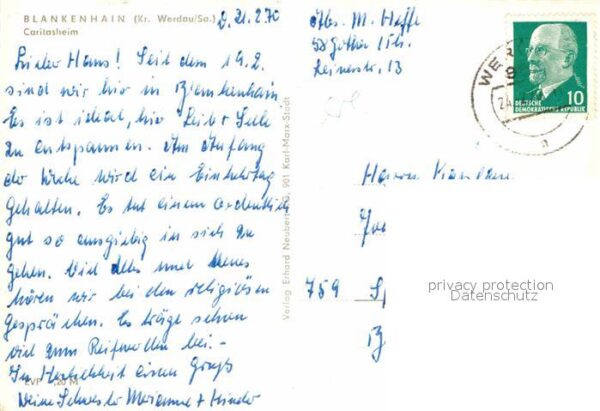 BLANKENHAIN (Kr. Werdau/Sa.)
Caritasheim
D. 21.2.70
Lieber Hans! Seit dem 19.2.
sind wir hier in Blankenhain.
Es ist ideal, hier Leib u. Seele
zu entspannen. Am Anfang
der Woche wird ein Einkehrtag
gehalten. Es tut einem ordentlich
gut so ausgiebig in sich zu
gehen. Viel Altes und Neues
hören wir bei den religiösen
Gesprächen. Es trägt schon
viel zum Reifwerden bei. -
In Herzlichkeit einen Gruß
Deine Schwester Marianne + Kinder
EVP
,20 M
Verlag Erhard Neubert KG, 901 Karl-Marx-Stadt
Abs. M. Heffe
58 Gotha / Th.
Leinerstr. 13
WER
10
DEUTSCHE
DEMOKRATISCHE REPUBLIK
Herrn
759
privacy protection
Datenschutz